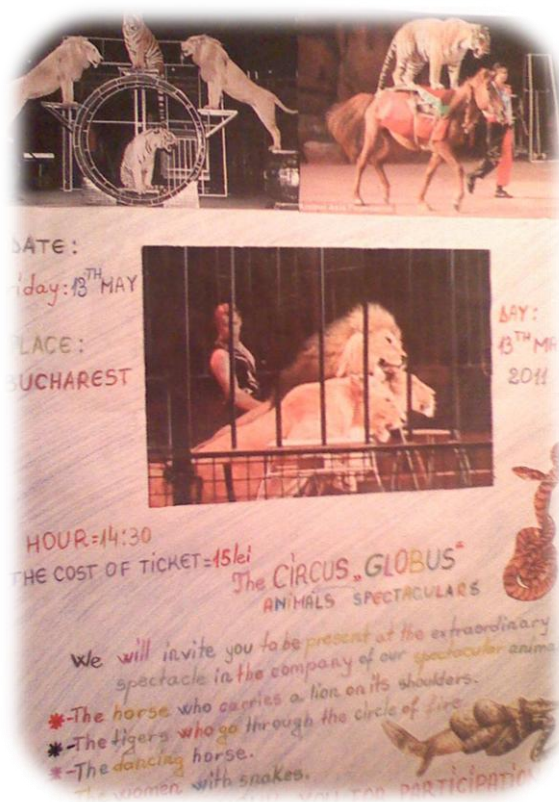 DATE:
Friday: 13TH MAY
PLACE:
BUCHAREST
DAY:
13TH MA
2011
HOUR=14:30
THE COST OF TICKET=15lei
The CIRCUS „GLOBUS"
ANIMALS SPECTACULARS
We will invite you to be present at the extraordinary
spectacle in the company of our spectacular anima
*-The horse who carries a lion on its shoulders.
*-The tigers who go through the circle of fire.
*-The dancing horse.
The women with snakes.
YOU FOR PARTICIPATIO